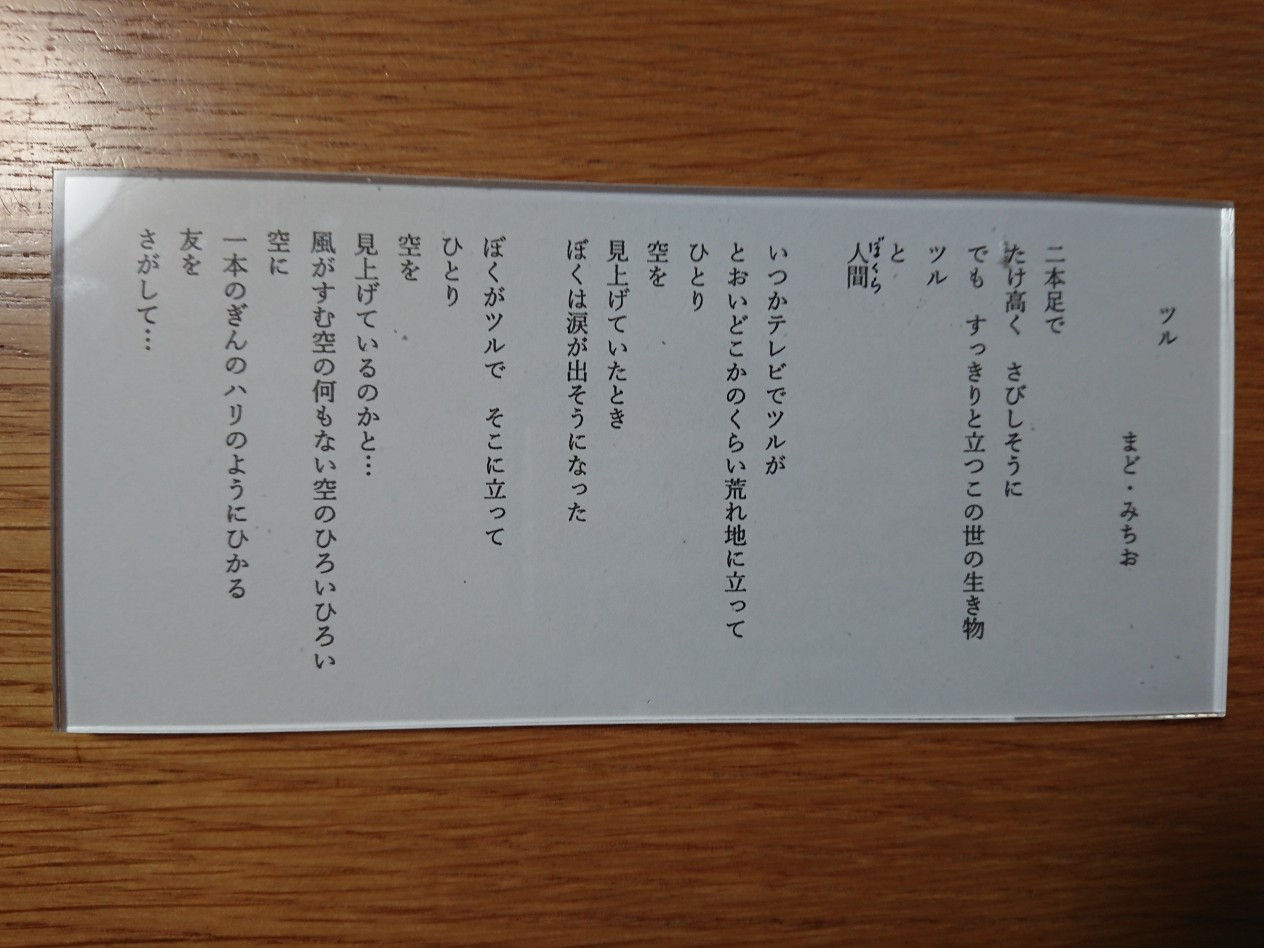 ツル
まど・みちお
二本足で
たけ高く　さびしそうに
でも　すっきりと立つこの世の生き物
ツル
と
人間
ぼくら
いつかテレビでツルが
とおいどこかのくらい荒れ地に立って
ひとり
空を
見上げていたとき
ぼくは涙が出そうになった
ぼくがツルで　そこに立って
ひとり
空を
見上げているのかと…
風がすむ空の何もない空のひろいひろい
空に
一本のぎんのハリのようにひかる
友を
さがして…